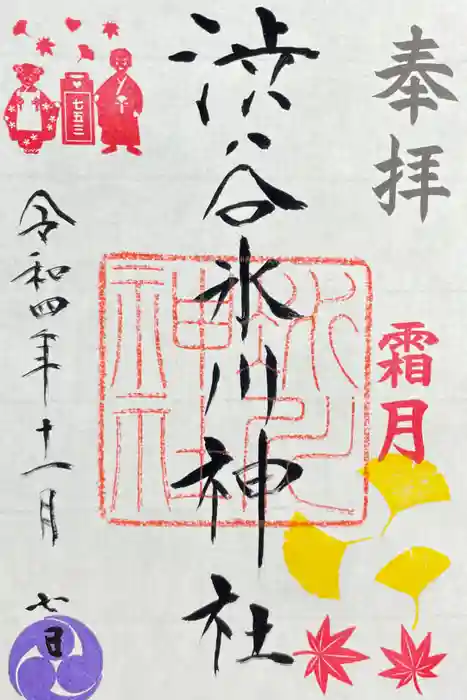 奉拝
霜月
渋谷氷川神社
氷川神社
七五三
令和四年十一月七日